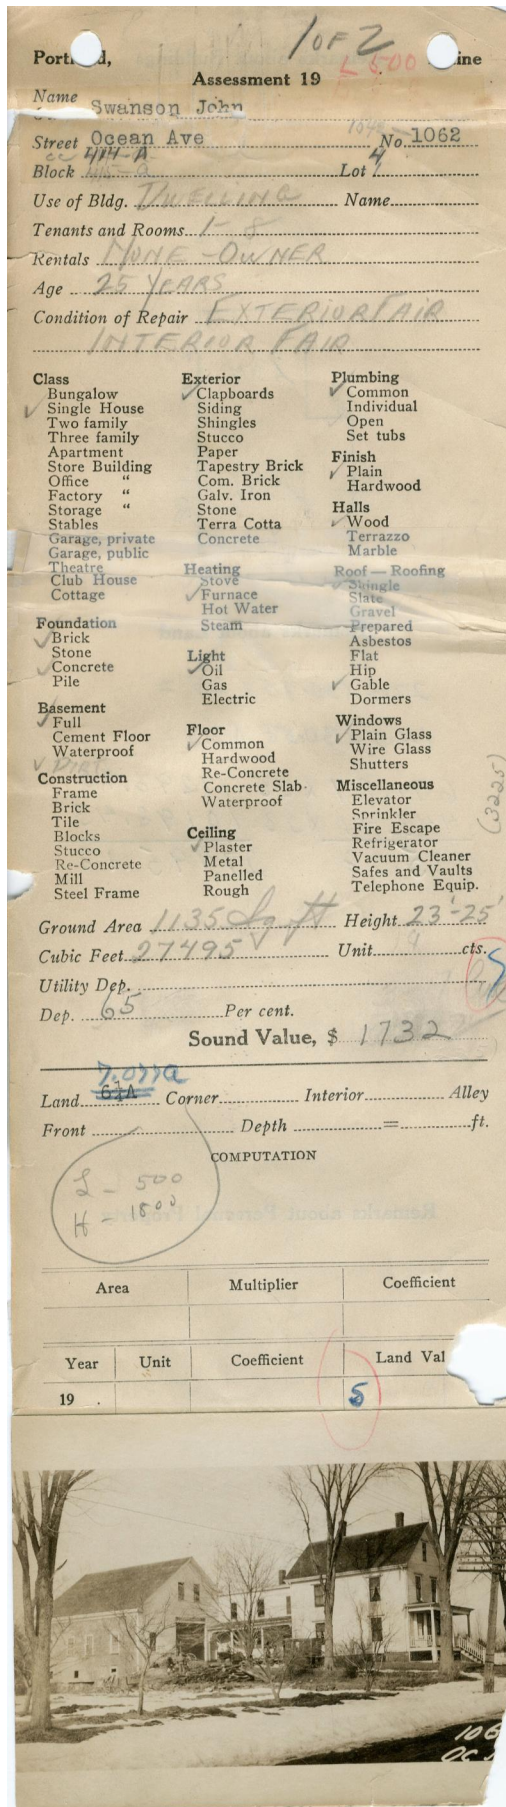 1 OF 2
Portl d, ine
L 500
Assessment 19
Name Swanson John
Street Ocean Ave No. 1062
414-A
Block Lot 4
Use of Bldg. DWELLING Name
Tenants and Rooms 1-8
Rentals NONE - OWNER
Age 25 YEARS
Condition of Repair EXTERIOR FAIR
INTERIOR FAIR
Class
Bungalow
Single House
Two family
Three family
Apartment
Store Building
Office "
Factory "
Storage "
Stables
Garage, private
Garage, public
Theatre
Club House
Cottage
Foundation
Brick
Stone
Concrete
Pile
Basement
Full
Cement Floor
Waterproof
DIRT
Construction
Frame
Brick
Tile
Blocks
Stucco
Re-Concrete
Mill
Steel Frame
Exterior
Clapboards
Siding
Shingles
Stucco
Paper
Tapestry Brick
Com. Brick
Galv. Iron
Stone
Terra Cotta
Concrete
Heating
Stove
Furnace
Hot Water
Steam
Light
Oil
Gas
Electric
Floor
Common
Hardwood
Re-Concrete
Concrete Slab
Waterproof
Ceiling
Plaster
Metal
Panelled
Rough
Plumbing
Common
Individual
Open
Set tubs
Finish
Plain
Hardwood
Halls
Wood
Terrazzo
Marble
Roof — Roofing
Shingle
Slate
Gravel
Prepared
Asbestos
Flat
Hip
Gable
Dormers
Windows
Plain Glass
Wire Glass
Shutters
Miscellaneous
Elevator
Sprinkler
Fire Escape
Refrigerator
Vacuum Cleaner
Safes and Vaults
Telephone Equip.
(3225)
Ground Area 1135 Sq. ft Height 23'-25'
Cubic Feet 27495 Unit 19 cts.
Utility Dep.
Dep. 65 Per cent.
Sound Value, $ 1732
7.07 A
Land 6½A Corner Interior Alley
Front Depth = ft.
COMPUTATION
L - 500
H - 1800
Area Multiplier Coefficient
Year Unit Coefficient Land Val
19 . 5
106
OC